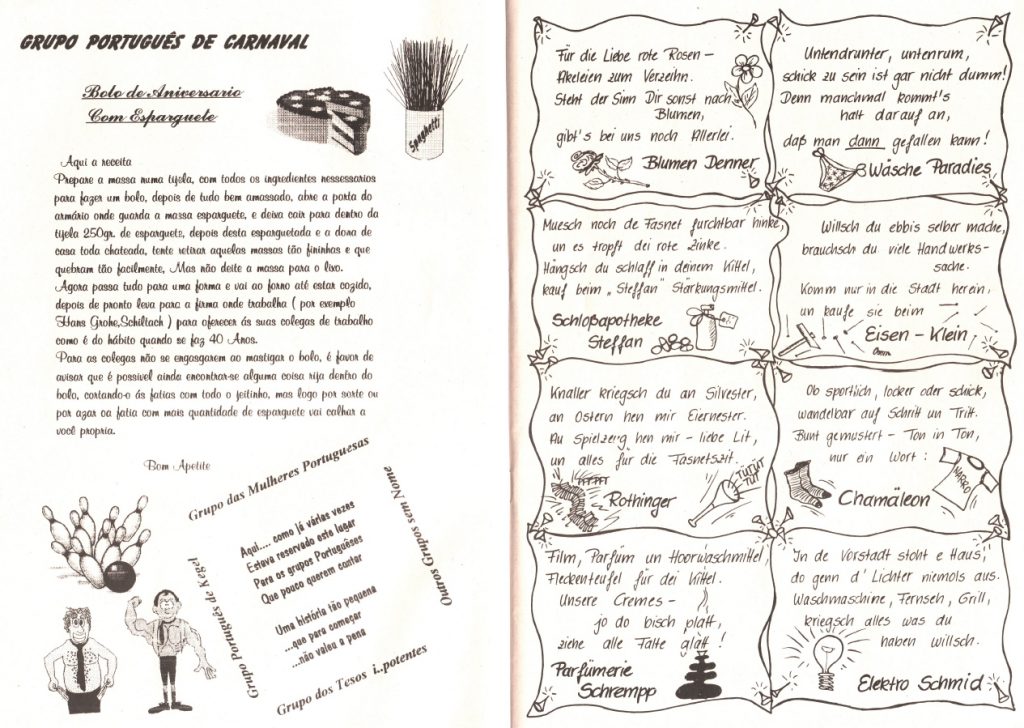 GRUPO PORTUGUÊS DE CARNAVAL
Bolo de Aniversario
Com Esparguete
Spaghetti
Aqui a receita
Prepare a massa numa tijela, com todos os ingredientes nessessarios
para fazer um bolo, depois de tudo bem amassado, abre a porta do
armário onde guarda a massa esparguete, e deixa cair para dentro da
tijela 250gr. de esparguete, depois desta esparguetada e a dona de
casa toda chateada, tente retirar aquelas massas tão fininhas e que
quebram tão facilmente, Mas não deite a massa para o lixo.
Agora passa tudo para uma forma e vai ao forno até estar cozido,
depois de pronto leva para a firma onde trabalha ( por exemplo
Hans Grohe,Schiltach ) para oferecer ás suas colegas de trabalho
como é do hábito quando se faz 40 Anos.
Para as colegas não se engasgarem ao mastigar o bolo, é favor de
avisar que é possivel ainda encontrar-se alguma coisa rija dentro do
bolo, cortando-o ás fatias com todo o jeitinho, mas logo por sorte ou
por azar oa fatia com mais quantidade de esparguete vai calhar a
você propria.
Bom Apetite
Grupo das Mulheres Portuguesas
Grupo Português de Kegel
Aqui.... como já várias vezes
Estava reservado este lugar
Para os grupos Portuguêses
Que pouco querem contar
Uma história tão pequena
...que para começar
...não valeu a pena
Outros Grupos sem Nome
Grupo dos Tesos i..potentes
Für die Liebe rote Rosen –
Akeleien zum Verzeihn.
Steht der Sinn Dir sonst nach
Blumen,
gibt's bei uns noch Allerlei.
Blumen Denner
Untendrunter, untenrum,
schick zu sein ist gar nicht dumm!
Denn manchmal kommt's
halt darauf an,
daß man dann gefallen kann!
Wäsche Paradies
Muesch noch de Fasnet furchtbar hinke,
un es tropft dei rote Zinke.
Hängsch du schlaff in deinem Kittel,
kauf beim „Steffan" Stärkungsmittel.
Schloßapotheke
Steffan
Willsch du ebbis selber mache,
brauchsch du viele Handwerks-
sache.
Komm nur in die Stadt herein,
un kaufe sie beim
Eisen – Klein
Knaller kriegsch du an Silvester,
an Ostern hen mir Eiernester.
Au Spielzerg hen mir – liebe Lit,
un alles für die Fasnetszit.
PFFPFT
Rothinger
TUTUT
TUT
Ob sportlich, locker oder schick,
wandelbar auf Schritt un Tritt.
Bunt gemustert – Ton in Ton,
nur ein Wort :
NARRO
Chamäleon
Film, Parfüm un Hoorwaschmittel,
Fleckenteufel für dei Kittel.
Unsere Cremes –
jo do bisch platt,
ziehe alle Falte glatt !
Parfümerie
Schrempp
In de Vorstadt stoht e Haus,
do genn d' Lichter niemols aus.
Waschmaschine, Fernseh, Grill,
kriegsch alles was du
haben willsch.
Elektro Schmid